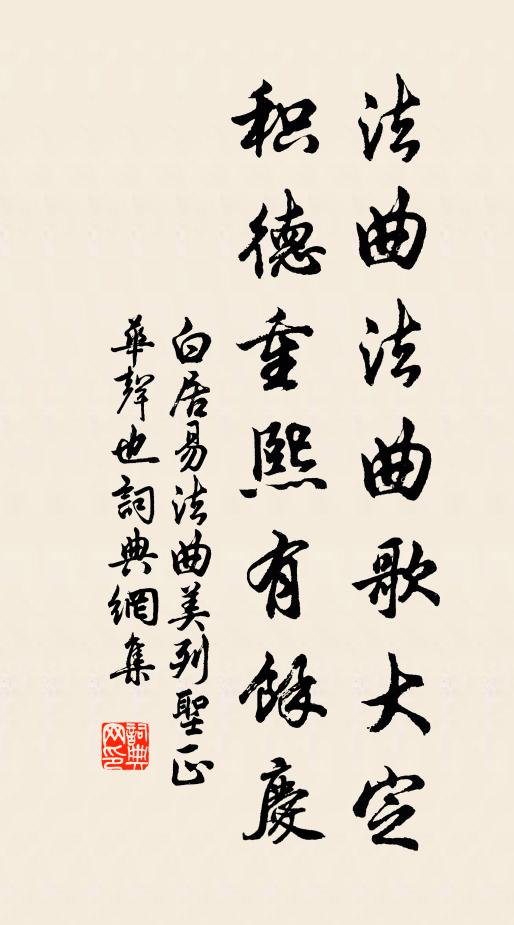 法曲法曲歌大定
积德重熙有餘慶
白居易法曲美列聖正
華聲也詞典網集
詞典网印